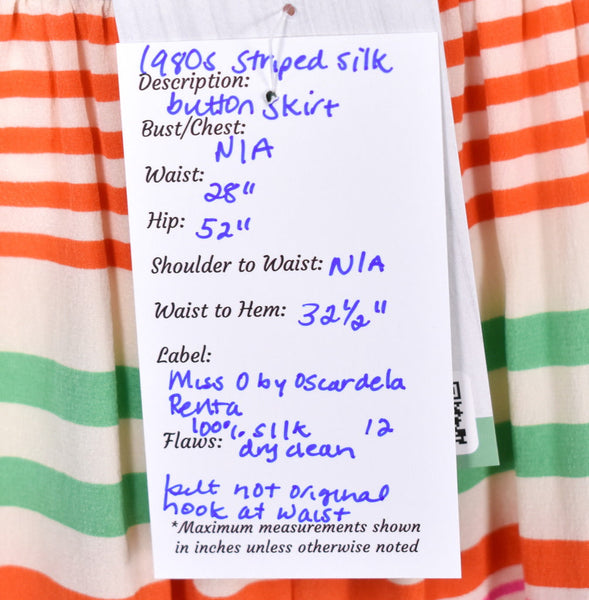 1980s striped silk
Description:
button skirt
Bust/Chest:
N/A
Waist:
28"
Hip: 52"
Shoulder to Waist: N/A
Waist to Hem: 32½"
Label:
Miss O by Oscar de la
Renta
100% silk 12
Flaws: dry clean
belt not original
hook at waist
*Maximum measurements shown
in inches unless otherwise noted